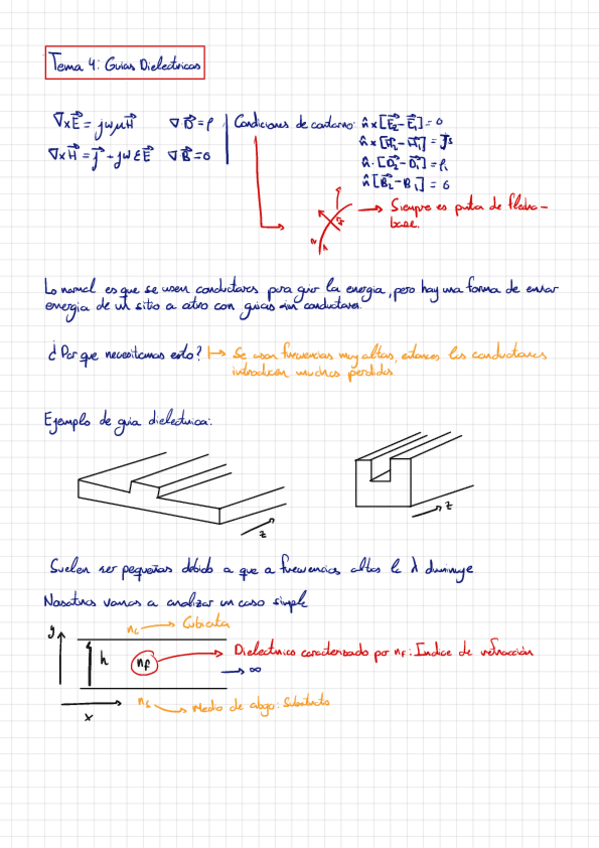 Tema 4: Guias Dielectricas
∇×E⃗ = jωμH⃗   ∇D⃗=ρ   Condiciones de contorno: n̂×[E⃗₂-E⃗₁]=0
n̂×[H⃗₂-H⃗₁]=J⃗s
∇×H⃗ = J⃗ - jωεE⃗   ∇B⃗=0   n̂·[D⃗₂-D⃗₁]=ρs
n̂[B⃗₂-B⃗₁]=0
Siempre es punta de flecha-
base.
Lo normal es que se usen conductores para guiar la energia, pero hay una forma de enviar
energia de un sitio a otro con guias sin conductores.
¿Por que necesitamos esto? Se usan frecuencias muy altas, entonces los conductores
introducen muchas perdidas.
Ejemplo de guia dielectrica:
z
z
Suelen ser pequeñas debido a que a frecuencias altas la λ disminuye
Nosotros vamos a analizar un caso simple
nc Cubierta
y
h nf Dielectrico caracterizado por nf: Indice de refracción
∞
ns Medio de abajo: Substrato
x